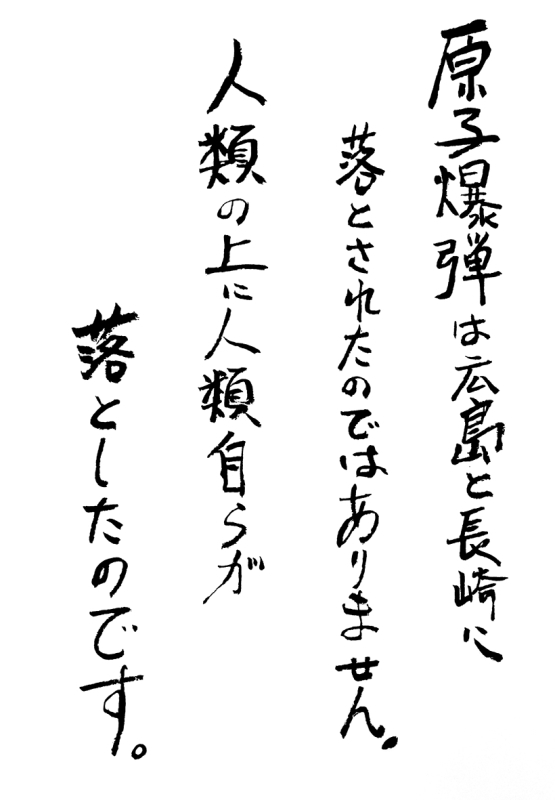 原子爆弾は広島と長崎に
落とされたのではありません。
人類の上に人類自らが
落としたのです。